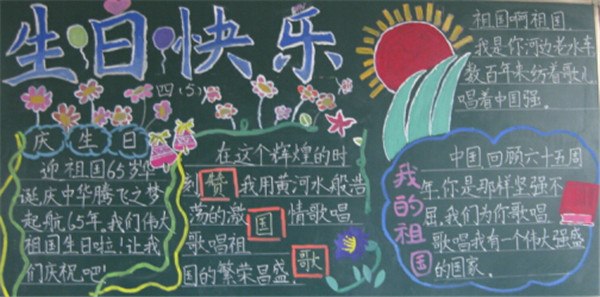 生日快乐
四(5)
庆生日
迎祖国65岁华
诞庆中华腾飞之梦
起航65年,我们伟大
祖国生日啦!让我
们庆祝吧!
在这个辉煌的时
刻赞我用黄河水般浩
荡的激国情歌唱
歌唱祖
国的繁荣昌盛.歌
祖国啊祖国.
我是你河边老水车
数百年来纺着歌儿
唱着中国强.
我的祖国
中国回顾六十五周
年,你是那样坚强不
屈,我们为你歌唱
歌唱我有一个伟大强盛
的国家.